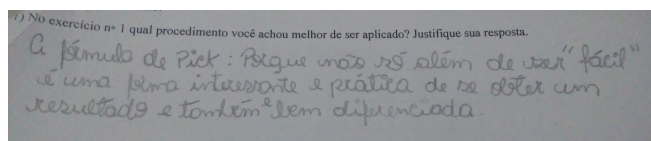 1) No exercício nº 1 qual procedimento você achou melhor de ser aplicado? Justifique sua resposta.
A fórmula de Pick: Porque não só além de ser "fácil"
é uma forma interessante e prática de se obter um
resultado e também é bem diferenciada.